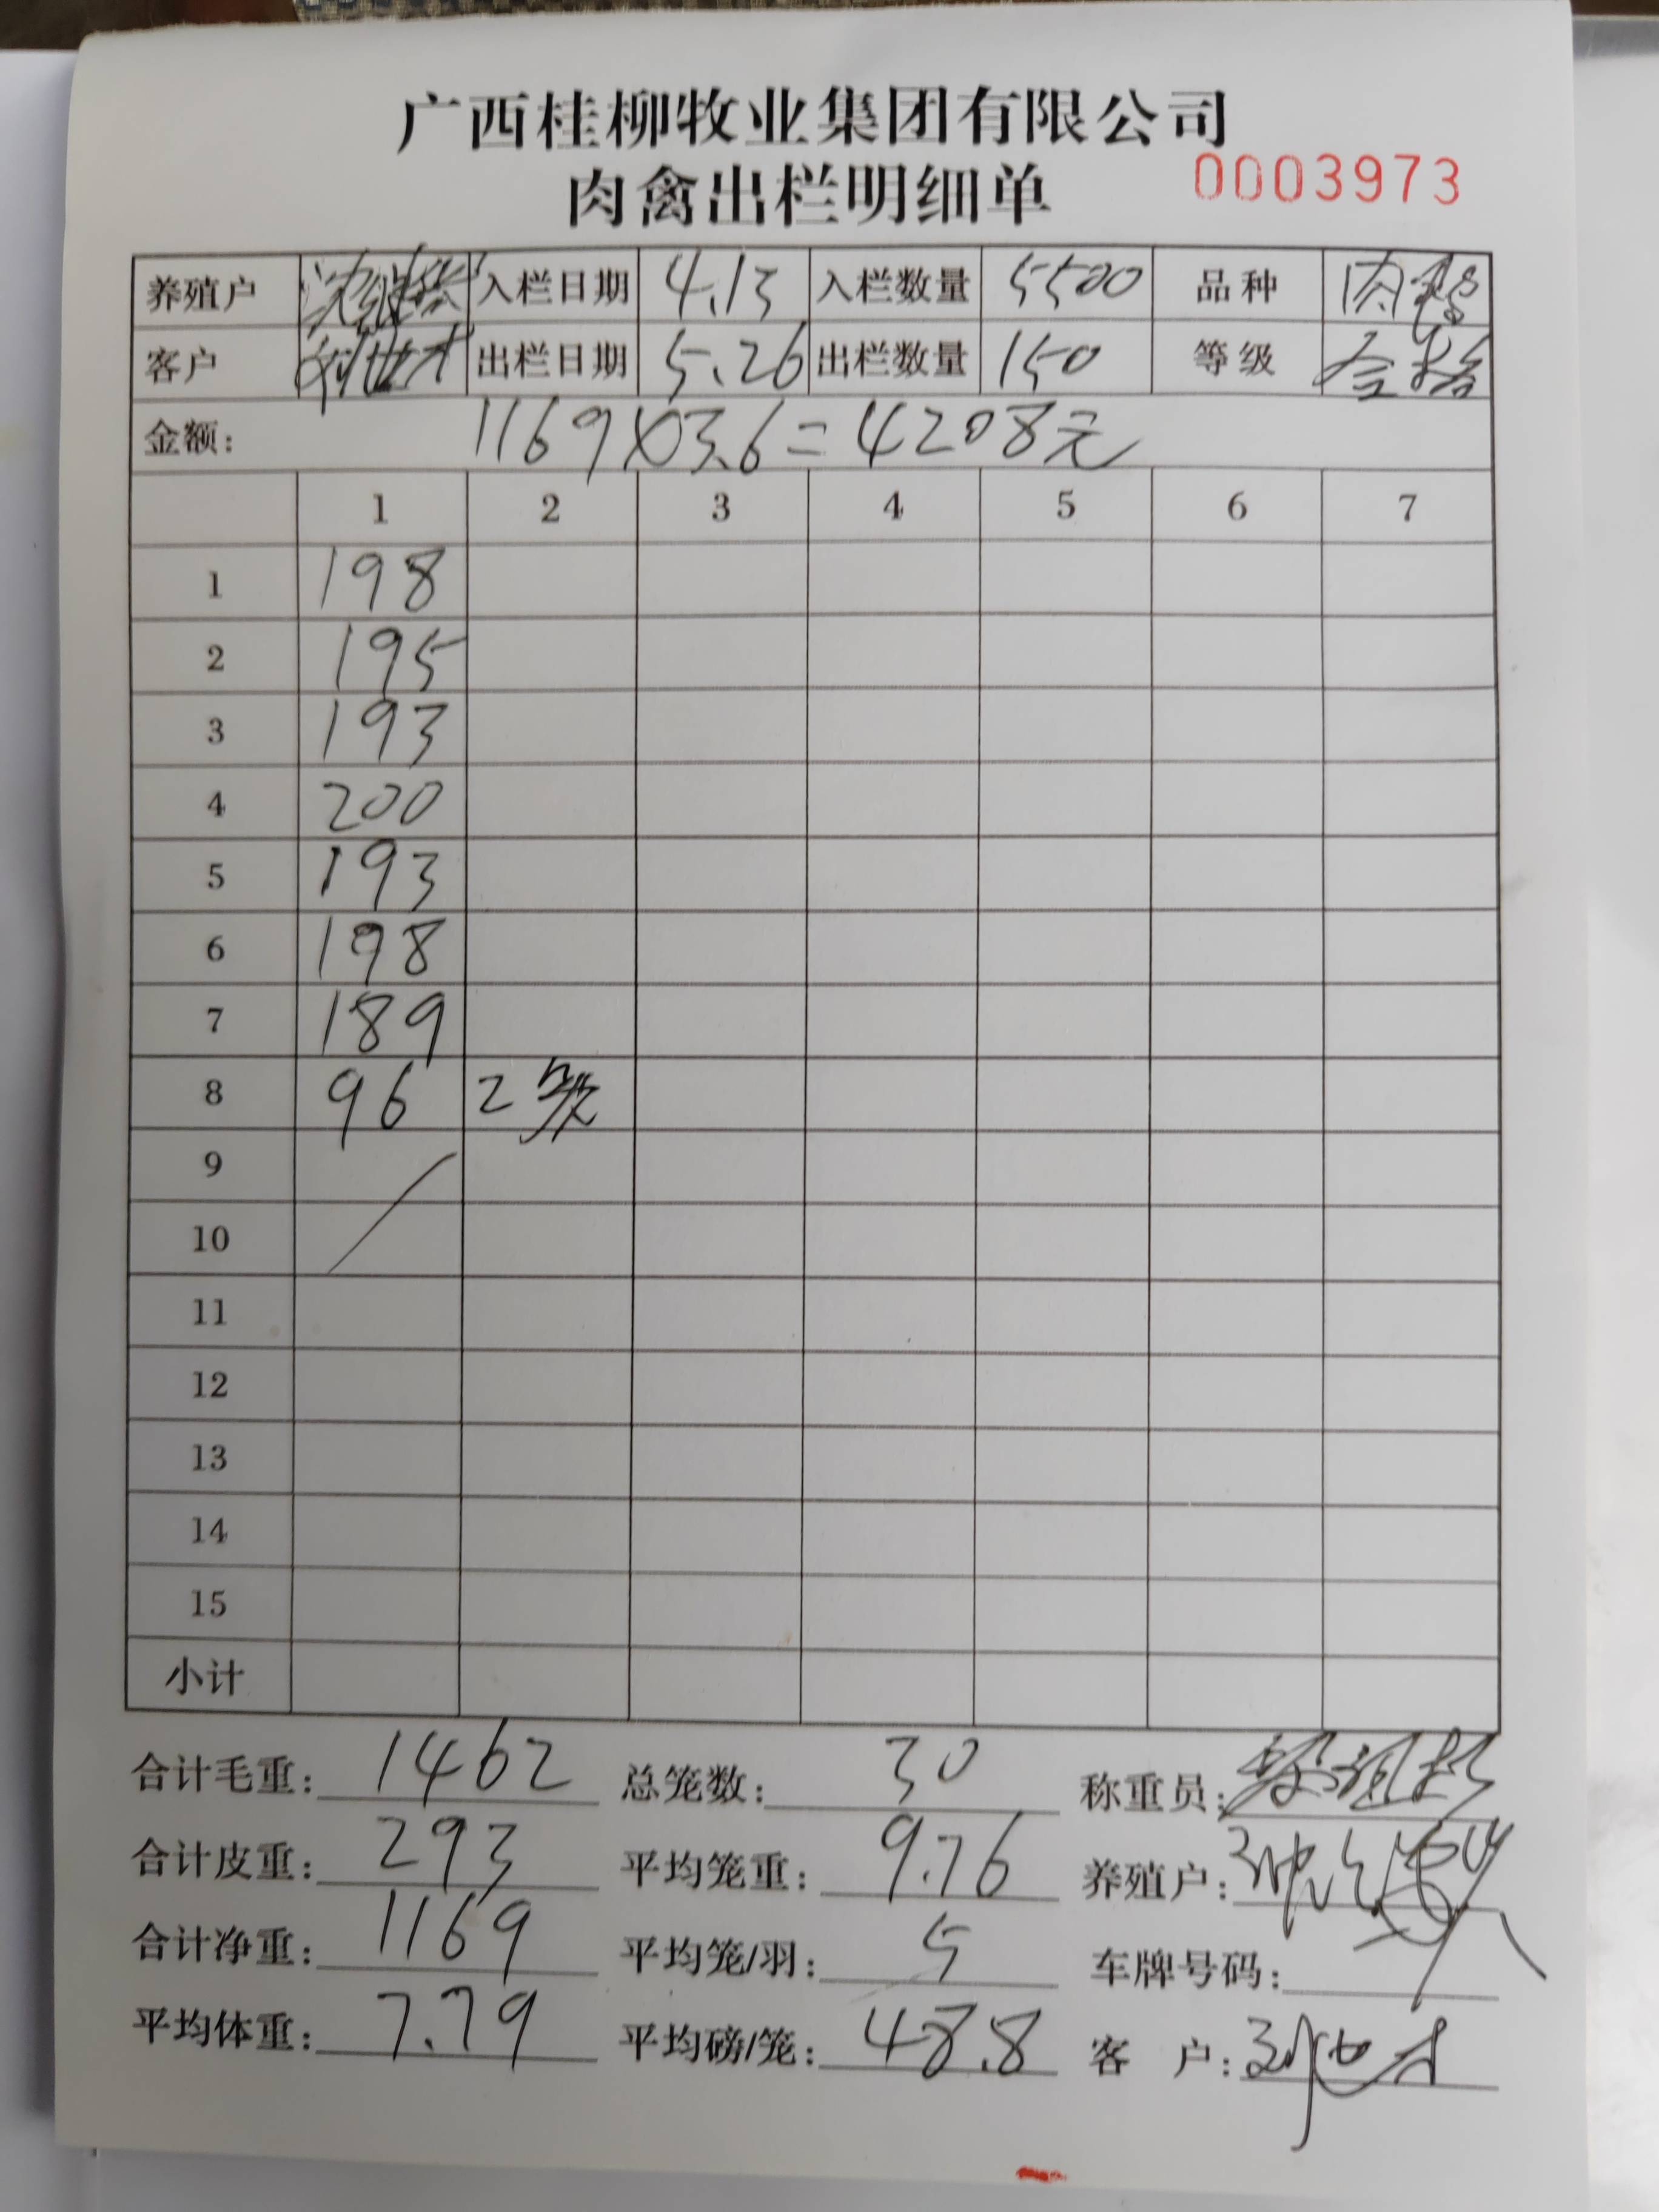 广西桂柳牧业集团有限公司
肉禽出栏明细单 0003973
养殖户 入栏日期 4.13 入栏数量 5500 品种 肉鸭
客户 出栏日期 5.26 出栏数量 150 等级 合格
金额: 1169×3.6=4208元
1 2 3 4 5 6 7
1 198
2 195
3 193
4 200
5 193
6 198
7 189
8 96 2
9
10
11
12
13
14
15
小计
合计毛重: 1462 总笼数: 30 称重员:
合计皮重: 293 平均笼重: 9.76 养殖户:
合计净重: 1169 平均笼/羽: 5 车牌号码:
平均体重: 7.79 平均磅/笼: 48.8 客 户: